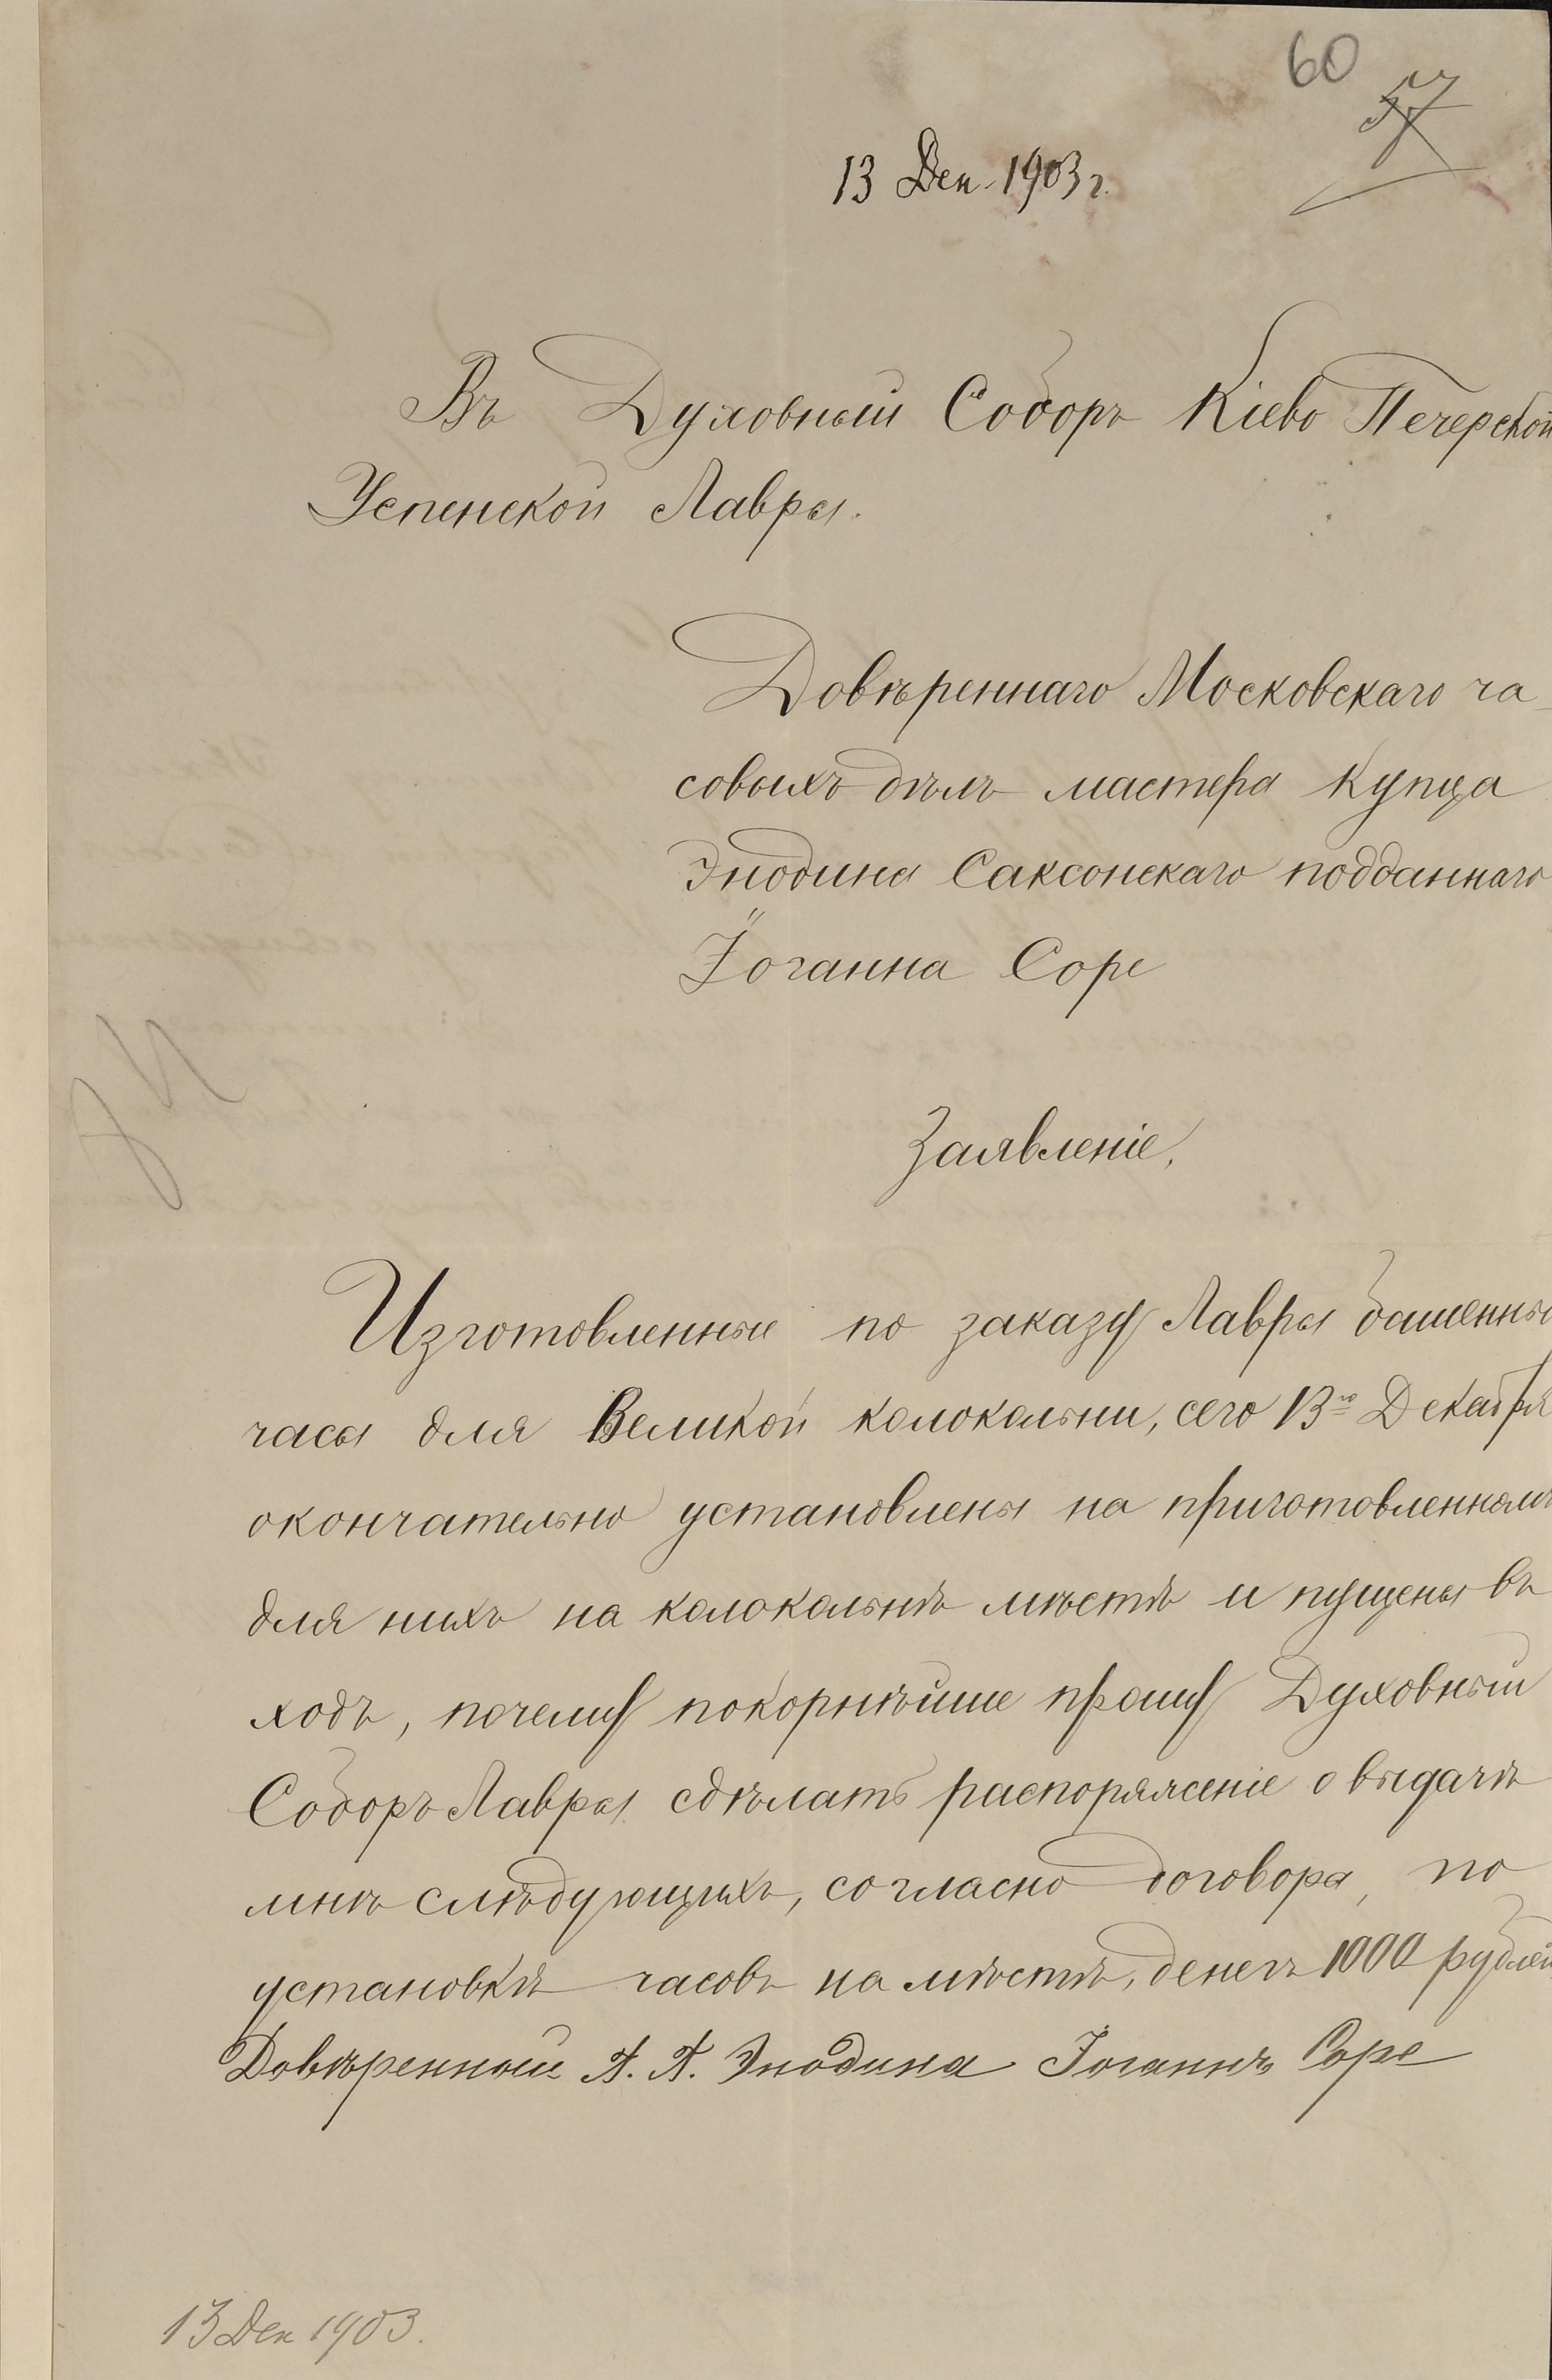 60
57
13 Дек. 1903 г.
Въ Духовный Соборъ Кіево Печерской
Успенской Лавры.
Довѣреннаго Московскаго ча-
совыхъ дѣлъ мастера Купца
Энодина Саксонскаго подданнаго
Іоганна Соре
Заявленіе.
Изготовленные по заказу Лавры башенные
часы для Великой колокольни, сего 13го Декабря
окончательно установлены на приготовленномъ
для нихъ на колокольнѣ мѣстѣ и пущены въ
ходъ, почему покорнѣйше прошу Духовный
Соборъ Лавры сдѣлать распоряженіе о выдачѣ
мнѣ слѣдующихъ, согласно договора, по
установкѣ часовъ на мѣстѣ, денегъ 1000 рублей
Довѣренный А. А. Энодина Іоганнъ Соре
13 Дек 1903.